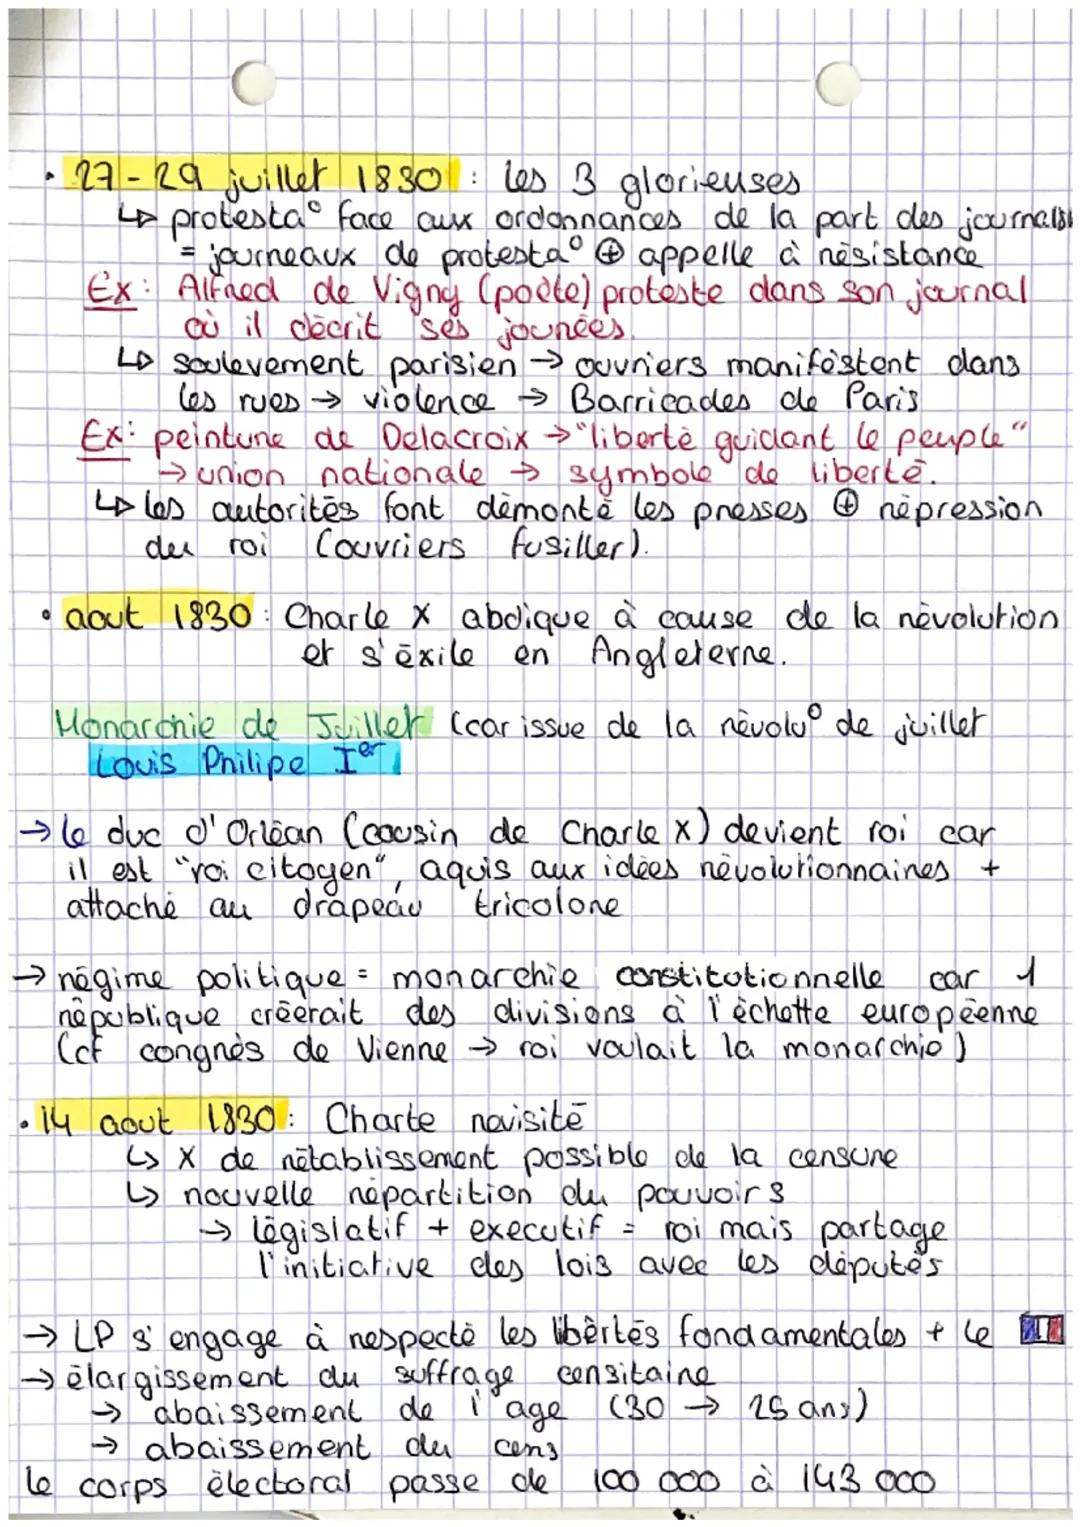 • 27-29 juillet 1830 : les 3 glorieuses
↳ protesta° face aux ordonnances de la part des journalis
= journeaux de protesta° ⊕ appelle à résistance
Ex: Alfred de Vigny (poète) proteste dans son journal
où il décrit ses journées.
↳ soulevement parisien → ouvriers manifestent dans
les rues → violence → Barricades de Paris
Ex: peinture de Delacroix → "liberté guidant le peuple"
→ union nationale → symbole de liberté.
↳ les autorités font démonté les presses ⊕ répression
du roi (ouvriers fusiller).
• aout 1830 : Charle X abdique à cause de la révolution
et s'éxile en Angleterre.
Monarchie de Juillet (car issue de la révolu° de juillet
Louis Philipe Ier
→ le duc d'Orléan (cousin de Charle X) devient roi car
il est "roi citoyen", aquis aux idées révolutionnaires +
attaché au drapeau tricolore
→ régime politique = monarchie constitutionnelle car 1
république créerait des divisions à l'échelle européenne
(cf congrès de Vienne → roi voulait la monarchie)
• 14 aout 1830 : Charte revisité
↳ X de rétablissement possible de la censure
↳ nouvelle répartition du pouvoirs
→ législatif + executif = roi mais partage
l'initiative des lois avec les députés
→ LP s'engage à respecté les libertés fondamentales + le
→ élargissement du suffrage censitaire
→ abaissement de l'age (30 → 25 ans)
→ abaissement du cens
le corps électoral passe de 100 000 à 143 000